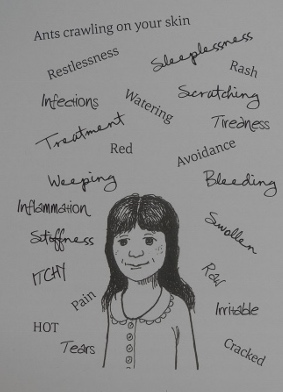 Ants crawling on your skin
Restlessness
Sleeplessness
Rash
Infections
Watering
Scratching
Treatment
Tiredness
Red
Avoidance
Weeping
Bleeding
Inflammation
Swollen
Stiffness
ITCHY
Raw
Pain
Irritable
HOT
Tears
Cracked